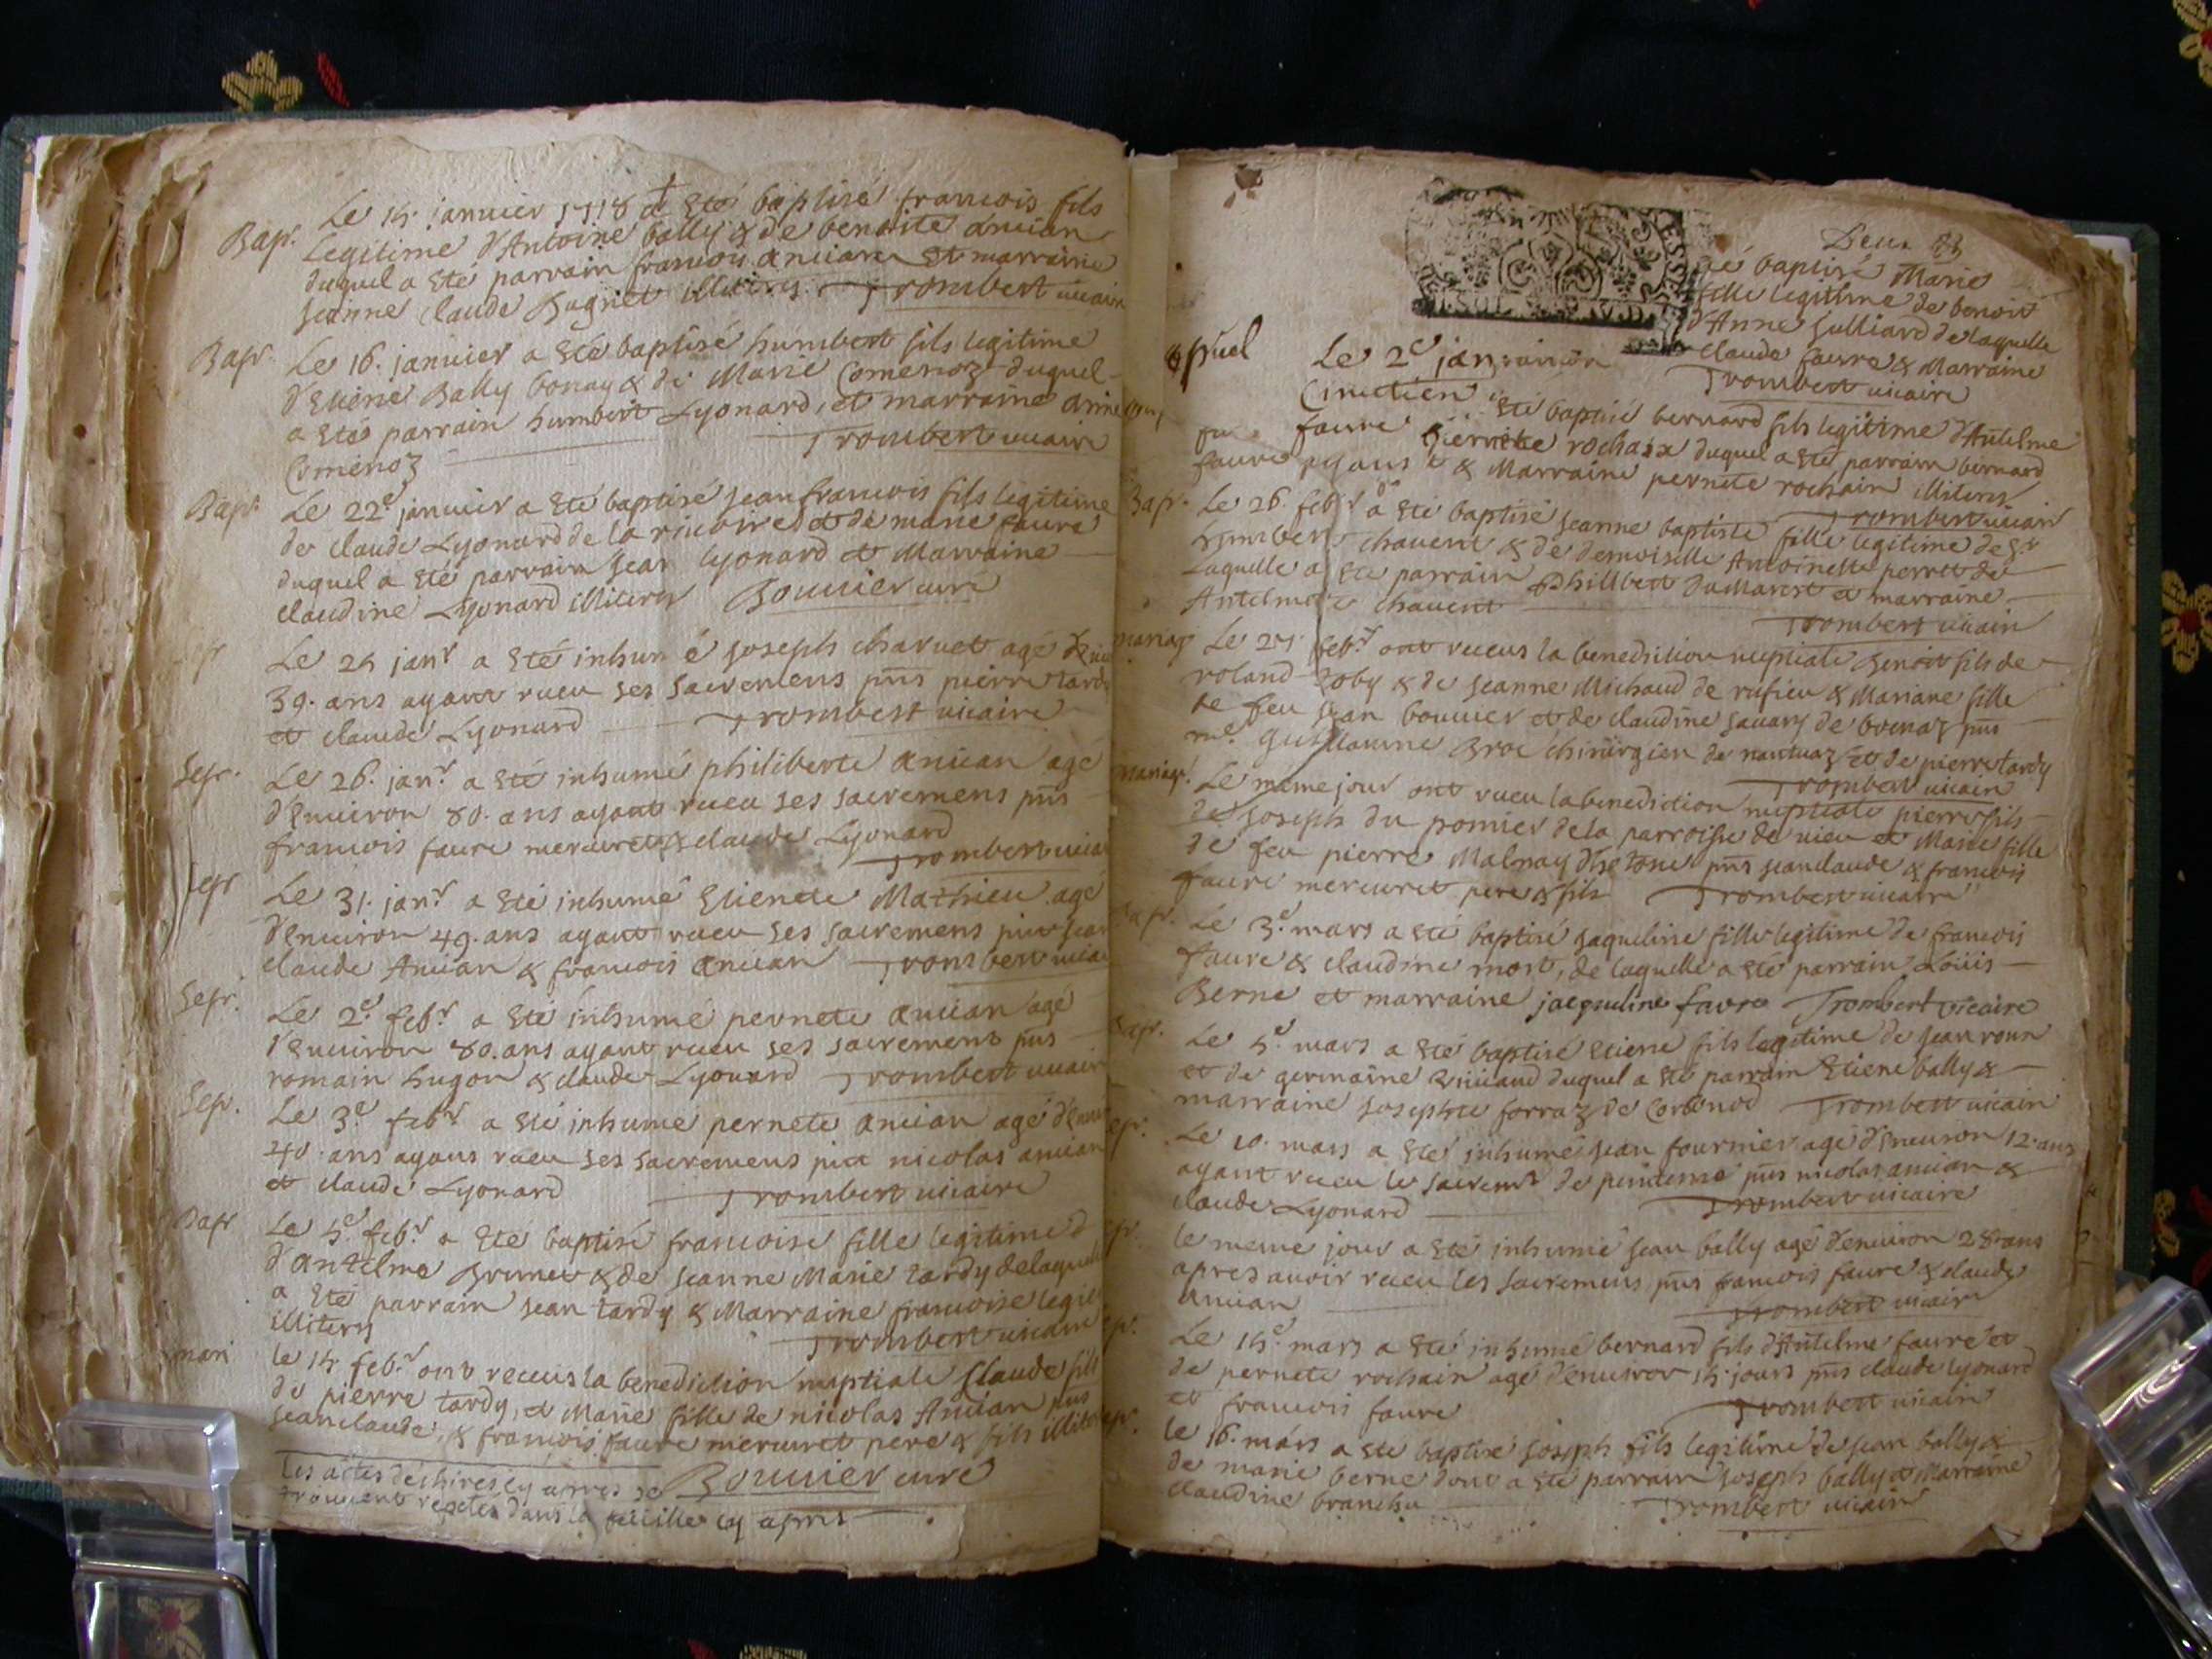 Bapt. Le 14. januier 1718 a Eté baptisé francois fils
Legitime d'Antoine bally & de benoite anuian
duquel a Eté parrain francois anuian Et marraine
jeanne claude illiteres Trombert uicaire
Bapt. Le 16. januier a Eté baptisé humbert fils legitime
d'Etiene Bally bonay & de Marie Comenoz duquel
a Eté parrain humbert Lyonard, et marraine anne
Comenoz Trombert uicaire
Bapt. Le 22e januier a Eté baptisé jean francois fils legitime
de claude Lyonard de la riuoire et de marie faure
duquel a Eté parrain jean lyonard et Marraine
claudine Lyonard illiteres Bouuier curé
Le 24 janr a Eté inhumé joseph charuet agé
39. ans ayant receu ses sacremens pns pierre tardy
et claude Lyonard Trombert uicaire
Sepr. Le 26. janr a Eté inhumé philiberte anuian agé
d'Enuiron 80. ans ayant receu ses sacremens pns
francois faure mercuret & claude Lyonard
Trombert uicai
Sepr Le 31. janr a Eté inhumé Etienete Mathieu agé
d'Enuiron 49. ans ayant receu ses sacremens jean
claude Anuian & francois anuian Trombert uicai
Sepr. Le 2e febr a Eté inhumé pernete anuian agé
d'Enuiron 80. ans ayant receu ses sacremens pns
romain hugon & claude Lyonard Trombert uicair
Sepr. Le 3e febr a Eté inhumé pernete anuian agé
40. ans ayans receu ses sacremens nicolas anuian
et claude Lyonard Trombert uicaire
Bapt Le 5e febr a Eté baptisé francoise fille legitime
d'antelme Brunet & de jeanne Marie tardy delaquel
a Eté parrain jean tardy & Marraine francoise
illiteres Trombert uicaire
mari le 14 febr ont receus la benediction nuptiale Claude fils
de pierre tardy, et Marie fille de nicolas Anuian pns
jeanclaude, & francois faure mercuret pere & fils illite
Bouuier curé
Les actes dechires cy apres se
trouuent dans la feüille cy apres
Deux
té baptisé Marie
fille legitime de benoit
d'Anne Julliard delaquelle
claude faure & Marraine
Trombert uicaire
Le 2e jan
Eté baptisé bernard fils legitime d'Antelme
faure pierrete rochaix duquel a Eté parrain bernard
faure & Marraine pernete rochaix illiteres
Trombert uicair
Bapt. Le 26. febr a Eté baptisé jeanne baptiste fille legitime de Sr
humbert chauent & de demoiselle Antoinette perret de
Laquelle a Eté parrain Philibert DuMarest et marraine
Antelme chauent
Trombert uicair
mariag Le 27. febr ont receus la benediction nuptiale Benoit fils de
roland Goby & de jeanne Michaud de rufieu & Mariane fille
de feu jean bouuier et de claudine sauary de pns
me. Guillaume Broc chirurgien de nantuaz et de pierre tardy
Trombert uicair
mariag. Le meme jour ont receu la benediction nuptiale pierre fils
de joseph du pomier de la parroisse de uieu et Marie fille
de feu pierre Malnay pns jeanclaude & francois
faure mercuret pere & fils Trombert uicaire
Bapt. Le 3e mars a Eté baptisé jaqueline fille legitime de francois
faure & claudine most, de laquelle a Eté parrain Loüis
Berne et marraine jacqueline favre Trombert vicaire
Bapt. Le 5e mars a Eté baptisé Etiene fils legitime de jean
et de germaine duquel a Eté parrain Etiene bally &
marraine josephte forraz de Trombert uicair
Le 10. mars a Eté inhumé jean fournier agé d'Enuiron 12. ans
ayant receu le sacremt de penitence pns nicolas anuian &
claude Lyonard Trombert uicaire
le meme jour a Eté inhumé jean bally agé d'enuiron 28 ans
apres auoir receu les sacremens pns francois faure & claude
Anuian Trombert uicaire
Le 14e mars a Eté inhumé bernard fils d'Antelme faure et
de pernete rochaix agé d'enuiron 14. jours pns claude lyonard
et francois faure Trombert uicair
le 16. mars a Eté baptisé joseph fils legitime de jean bally &
de marie berne dont a Eté parrain joseph bally & Marraine
claudine branchu Trombert uicair